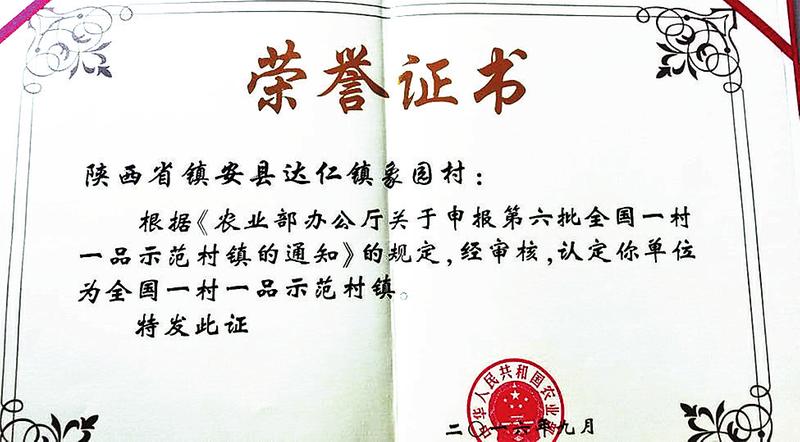 荣誉证书
陕西省镇安县达仁镇象园村：
根据《农业部办公厅关于申报第六批全国一村
一品示范村镇的通知》的规定，经审核，认定你单位
为全国一村一品示范村镇。
特发此证
中华人民共和国农业部
二〇一六年九月